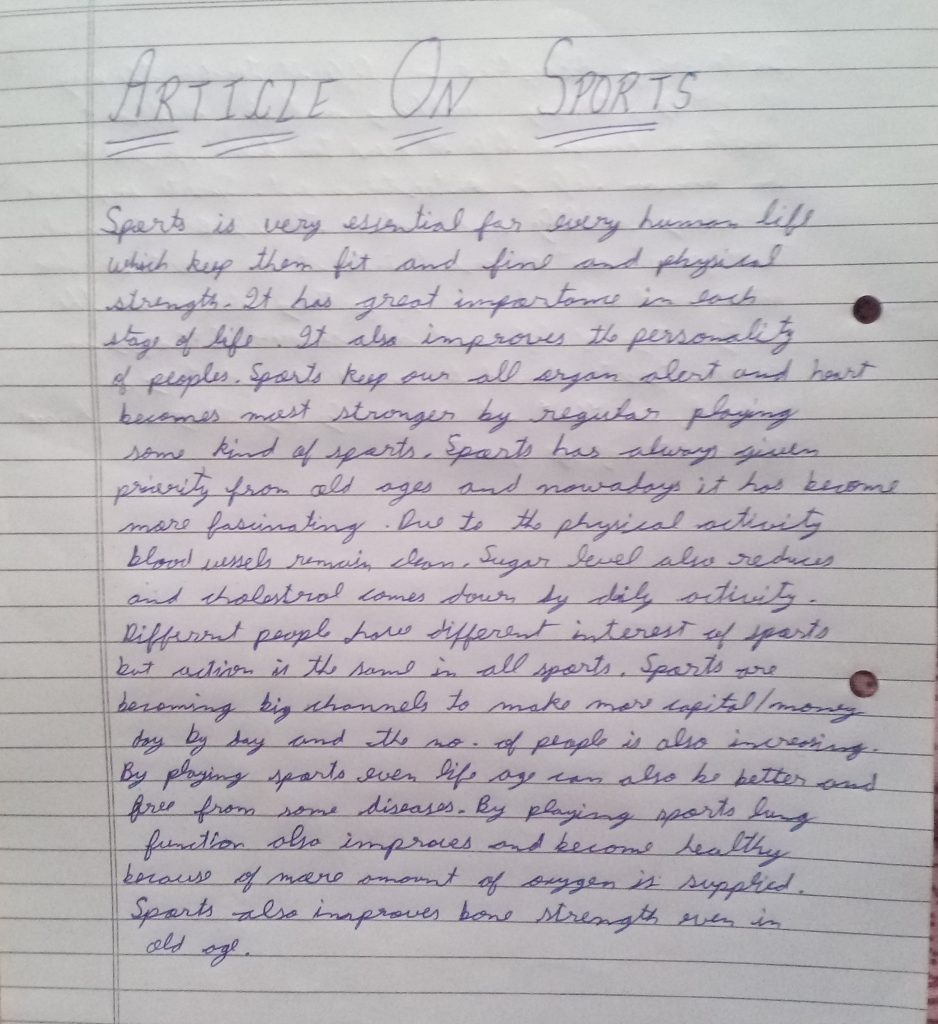 ARTICLE ON SPORTS
Sports is very essential for every human life
which keep them fit and fine and physical
strength. It has great importance in each
stage of life. It also improves the personality
of peoples. Sports keep our all organ alert and heart
becomes most stronger by regular playing
some kind of sports. Sports has always given
priority from old ages and nowadays it has become
more fascinating. Due to the physical activity
blood vessels remain clean. Sugar level also reduces
and cholestrol comes down by dily activity.
Different people have different interest of sports
but action is the same in all sports. Sports are
becoming big channels to make more capital/money
day by day and the no. of people is also increasing.
By playing sports even life age can also be better and
free from some diseases. By playing sports lung
function also improves and become healthy
because of more amount of oxygen is supplied.
Sports also improves bone strength even in
old age.